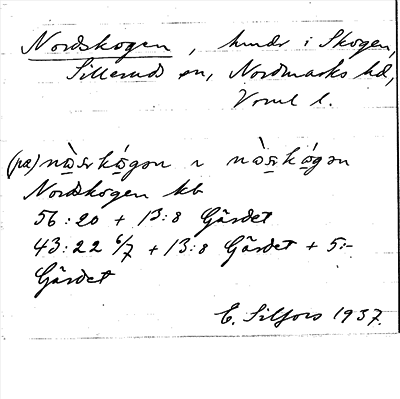 Nordskogen, hmdr i Skogen,
Silleruds sn, Nordmarks hd,
Vrml l.
(pa) nòsrkógən r nòsrkógən
Nordskogen kb
56:20 + 13:8 Gärdet
43:22 6/7 + 13:8 Gärdet + 5:-
Gärdet
E. Silfors 1937.